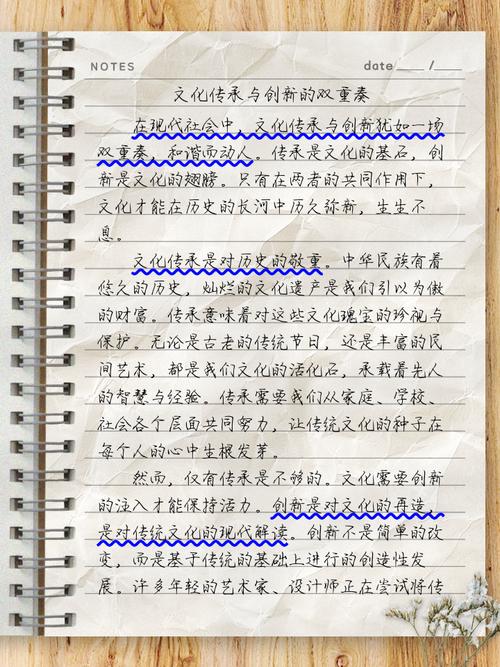 NOTES date ____ /___
文化传承与创新的双重奏
在现代社会中，文化传承与创新犹如一场
双重奏，和谐而动人。传承是文化的基石，创
新是文化的翅膀。只有在两者的共同作用下，
文化才能在历史的长河中历久弥新，生生不
息。
文化传承是对历史的敬重。中华民族有着
悠久的历史，灿烂的文化遗产是我们引以为傲
的财富。传承意味着对这些文化瑰宝的珍视与
保护。无论是古老的传统节日，还是丰富的民
间艺术，都是我们文化的活化石，承载着先人
的智慧与经验。传承需要我们从家庭、学校、
社会各个层面共同努力，让传统文化的种子在
每个人的心中生根发芽。
然而，仅有传承是不够的。文化需要创新
的注入才能保持活力。创新是对文化的再造，
是对传统文化的现代解读。创新不是简单的改
变，而是基于传统的基础上进行的创造性发
展。许多年轻的艺术家、设计师正在尝试将传